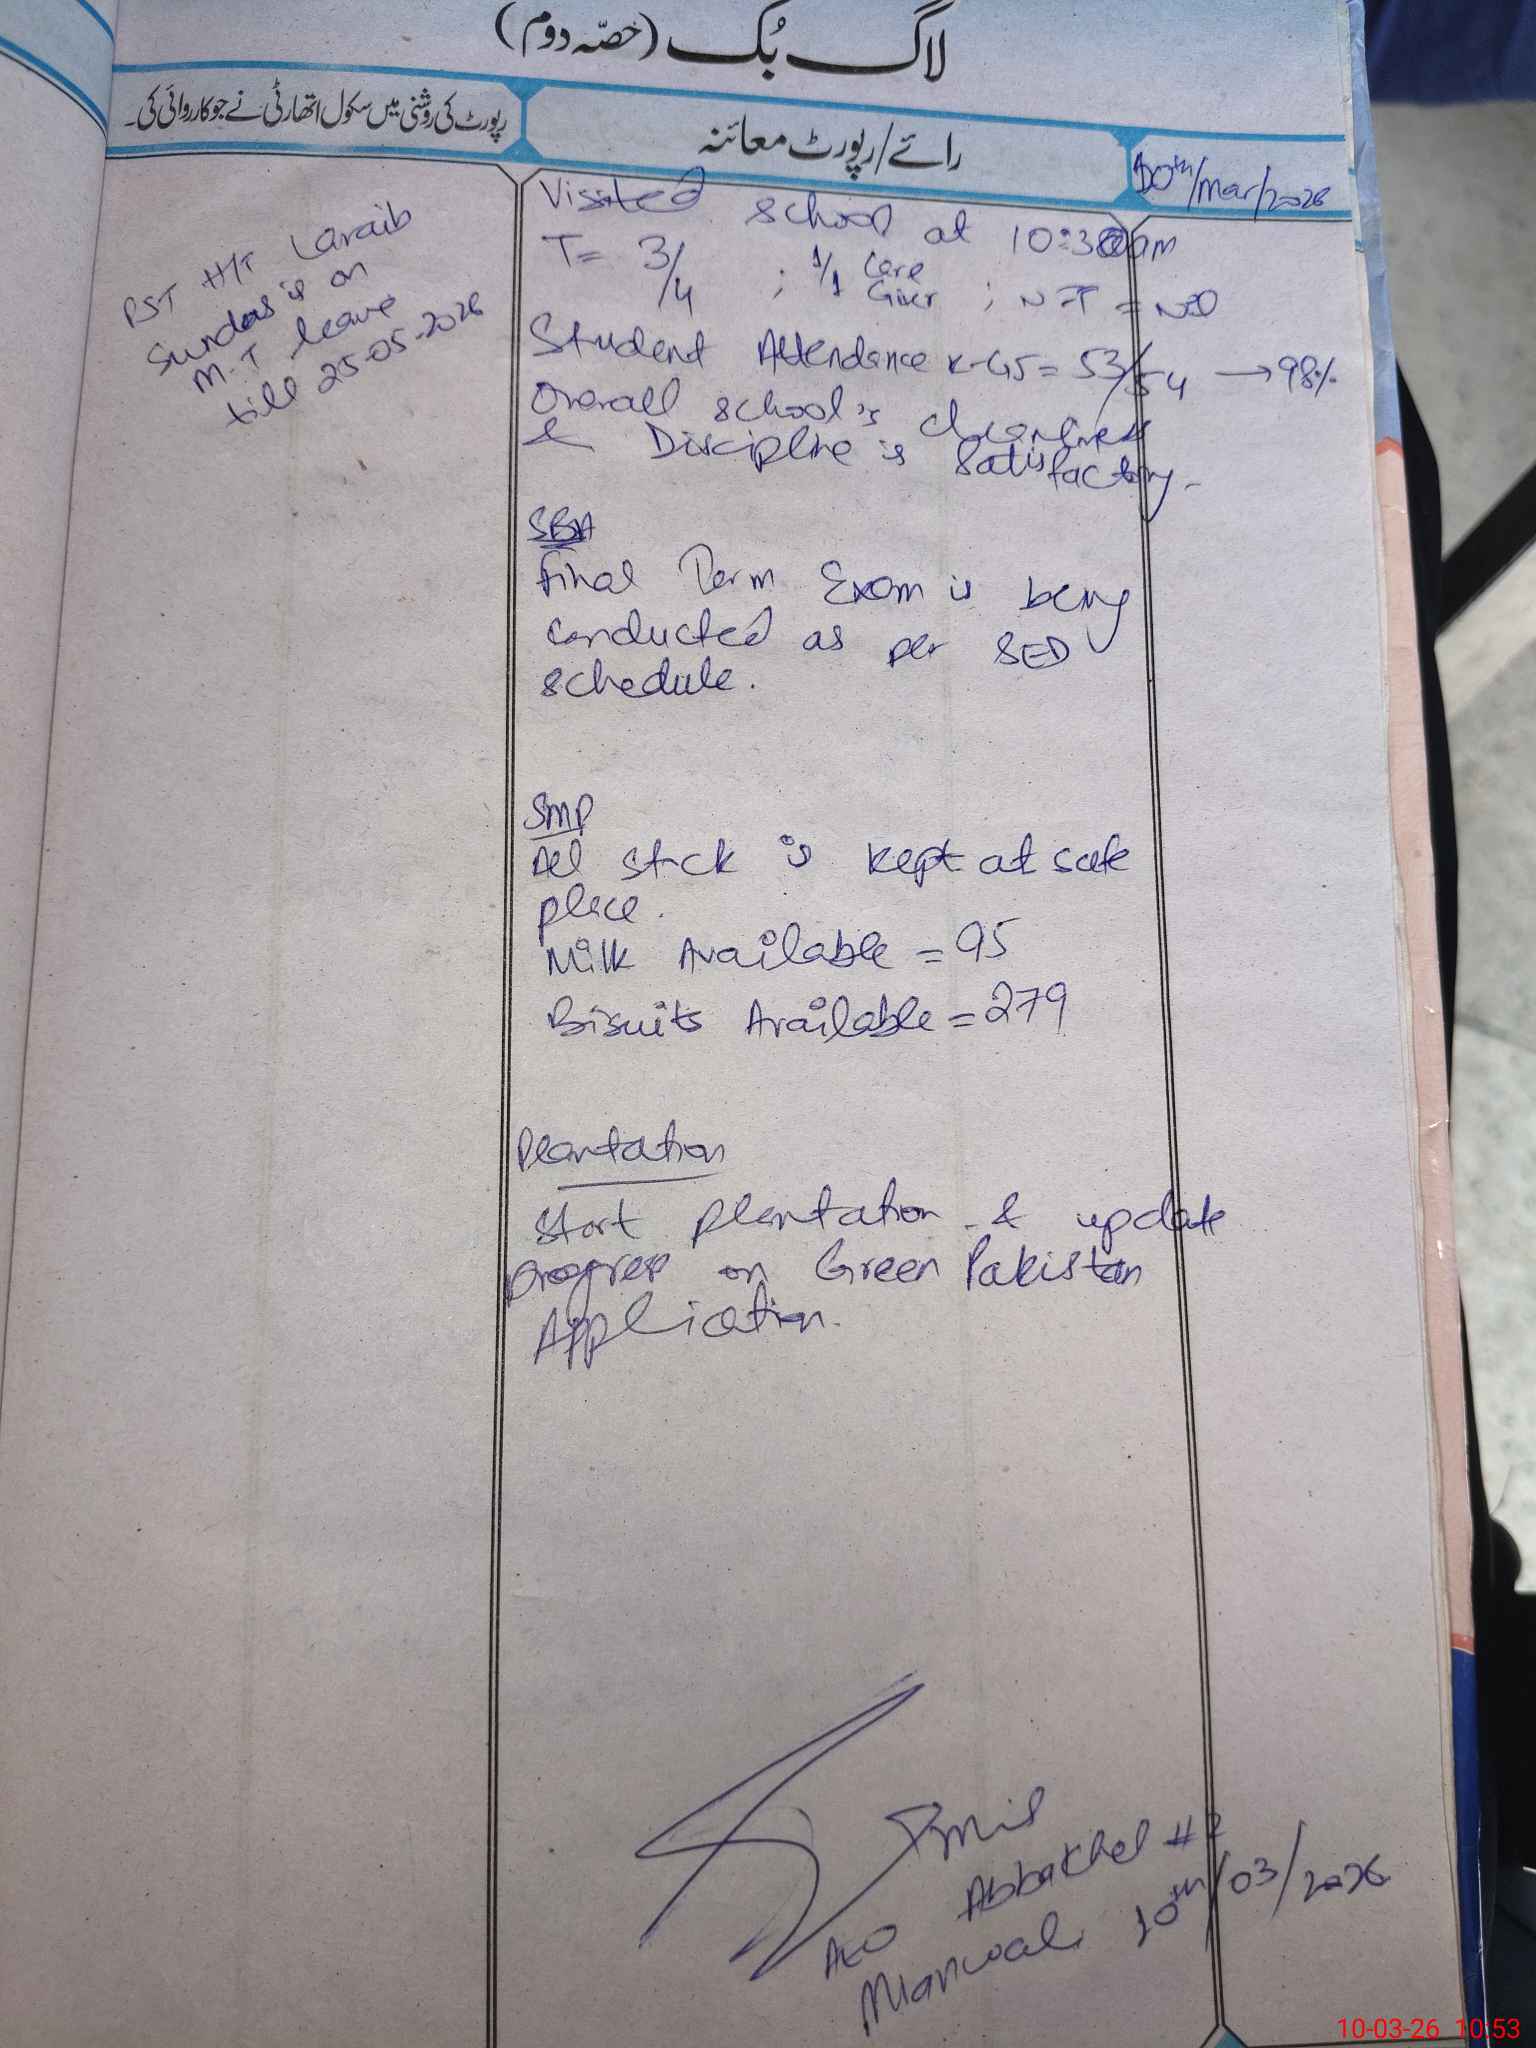 لاگ بُک (حصّہ دوم)
رپورٹ کی روشنی میں سکول اتھارٹی نے جو کارروائی کی۔
رائے/رپورٹ معائنہ
10th/Mar/2026
PST H/T Laraib
Sundas is on
M.T leave
till 25-05-2026
Vissted school at 10:30am
T= 3/4 ; 1/1 Care Giver ; N-T =
Student Attendance K-G5 = 53/54 → 98%
Overall school's cleanliness
& Discipline is Satisfactory.
SBA
Final Term Exam is being
conducted as per SED
schedule.
SMP
All stock is kept at safe
place.
Milk Available = 95
Biscuits Available = 279
Plantation
Start plantation & update
progress on Green Pakistan
Application.
AEO Abbakhel #2
Mianwali 10th/03/2026
10-03-26 10:53